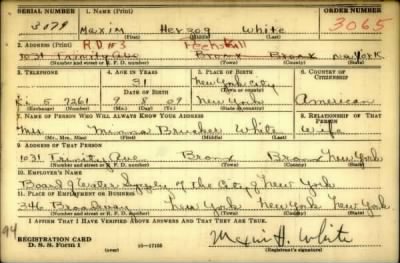 SERIAL NUMBER 1. NAME (Print) ORDER NUMBER
3079 Maxim Herzog White 3065
(First) (Middle) (Last)
2. ADDRESS (Print) R.D #3 Peekskill
1031 Trinity Ave Bronx Bronx New York
(Number and street or R. F. D. number) (Town) (County) (State)
3. TELEPHONE 4. AGE IN YEARS 5. PLACE OF BIRTH 6. COUNTRY OF CITIZENSHIP
31 New York City
DATE OF BIRTH (Town or county)
5 7261 9 8 09 New York American
(Exchange) (Number) (Mo.) (Day) (Yr.) (State or country)
7. NAME OF PERSON WHO WILL ALWAYS KNOW YOUR ADDRESS 8. RELATIONSHIP OF THAT PERSON
Mrs. Minna White Wife
(Mr., Mrs., Miss) (First) (Middle) (Last)
9. ADDRESS OF THAT PERSON
1031 Trinity Ave Bronx Bronx New York
(Number and street or R. F. D. number) (Town) (County) (State)
10. EMPLOYER'S NAME
Board of Water Supply of the City of New York
11. PLACE OF EMPLOYMENT OR BUSINESS
346 Broadway New York New York New York
(Number and street or R. F. D. number) (Town) (County) (State)
I AFFIRM THAT I HAVE VERIFIED ABOVE ANSWERS AND THAT THEY ARE TRUE.
94
REGISTRATION CARD
D. S. S. FORM 1 16-17105 Maxim H. White
(Registrant's signature)